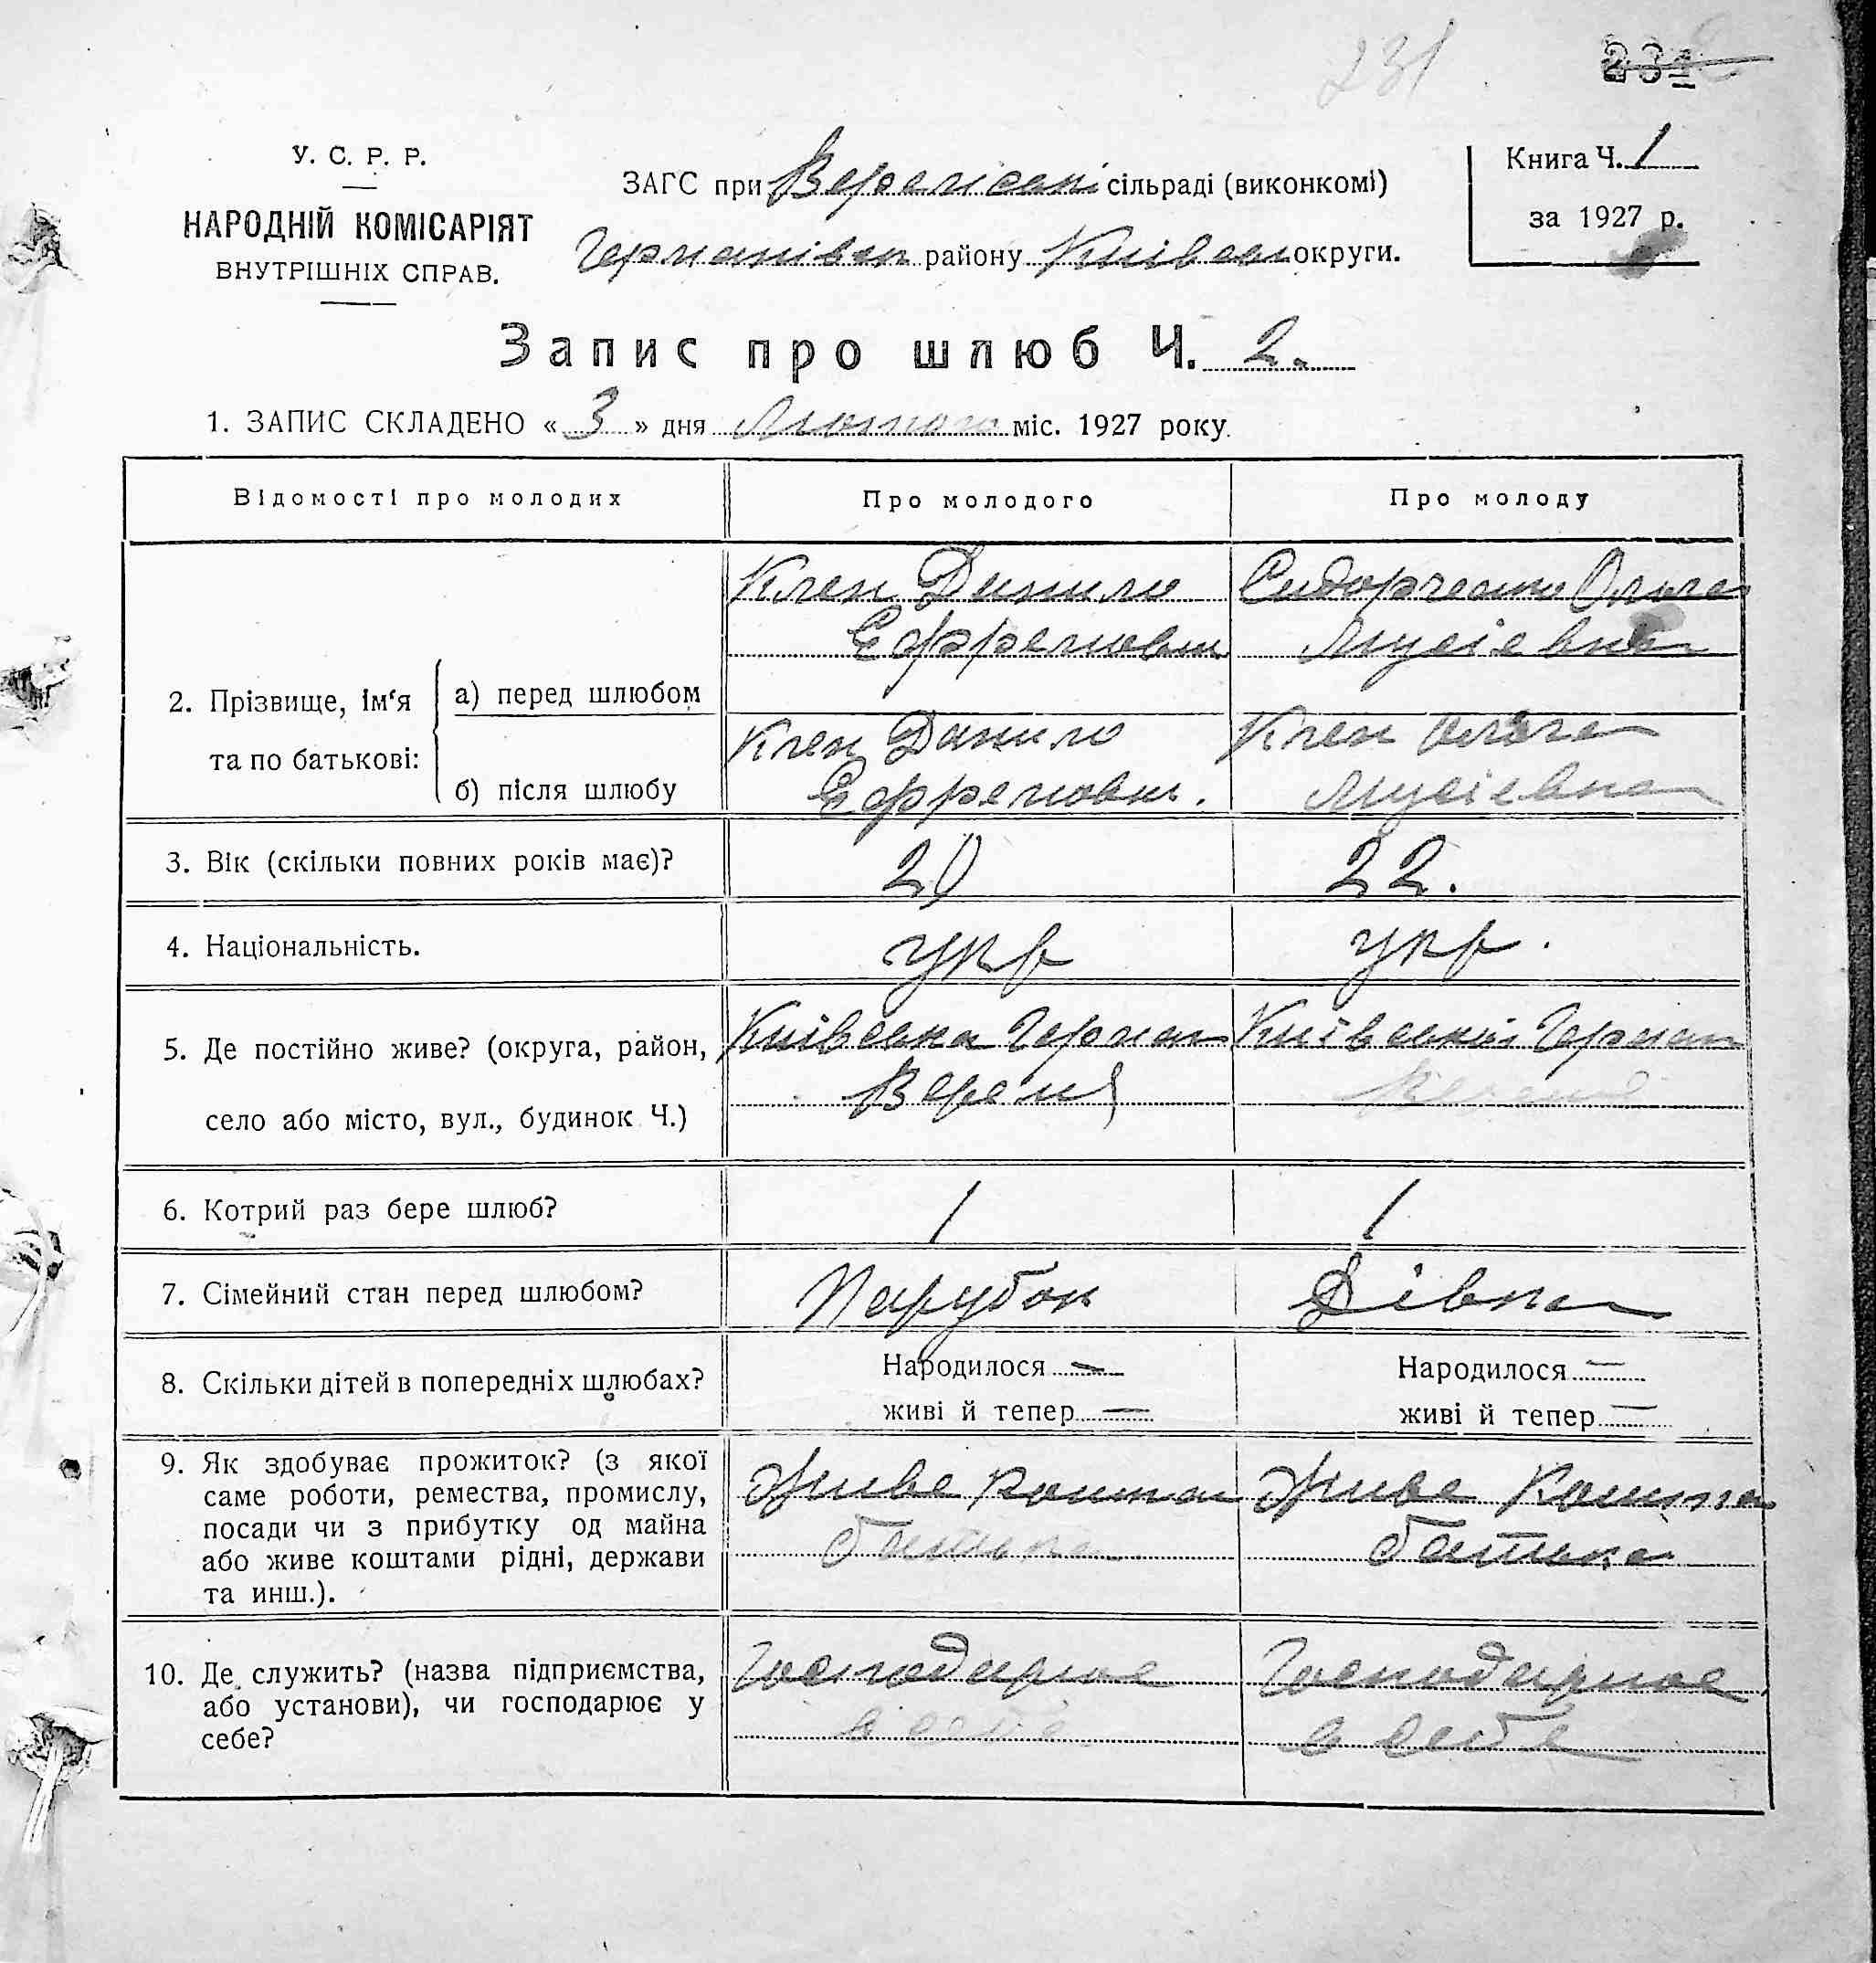 231
У. С. Р. Р.
НАРОДНІЙ КОМІСАРІЯТ
ВНУТРІШНІХ СПРАВ.
ЗАГС при сільраді (виконкомі)
району округи.
Книга Ч. 1
за 1927 р.
Запис про шлюб Ч. 2.
1. ЗАПИС СКЛАДЕНО « 3 » дня Лютого міс. 1927 року.
Відомості про молодих
Про молодого
Про молоду
2. Прізвище, ім‘я та по батькові:
а) перед шлюбом
Клен Данило
Сидорченко Ольга
Мусіевна
б) після шлюбу
Клен Данило
Клен Ольга
Мусіевна
3. Вік (скільки повних років має)?
20
22.
4. Національність.
укр
укр.
5. Де постійно живе? (округа, район,
село або місто, вул., будинок Ч.)
Київська Герман
Київська Герман
6. Котрий раз бере шлюб?
1
1
7. Сімейний стан перед шлюбом?
Парубок
Дівка
8. Скільки дітей в попередніх шлюбах?
Народилося —
живі й тепер —
Народилося —
живі й тепер —
9. Як здобуває прожиток? (з якої
саме роботи, ремества, промислу,
посади чи з прибутку од майна
або живе коштами рідні, держави
та инш.).
Живе кошта
батька
Живе Кошта
батька
10. Де служить? (назва підприємства,
або установи), чи господарює у
себе?
Господарює
в себе
Господарює
в себе